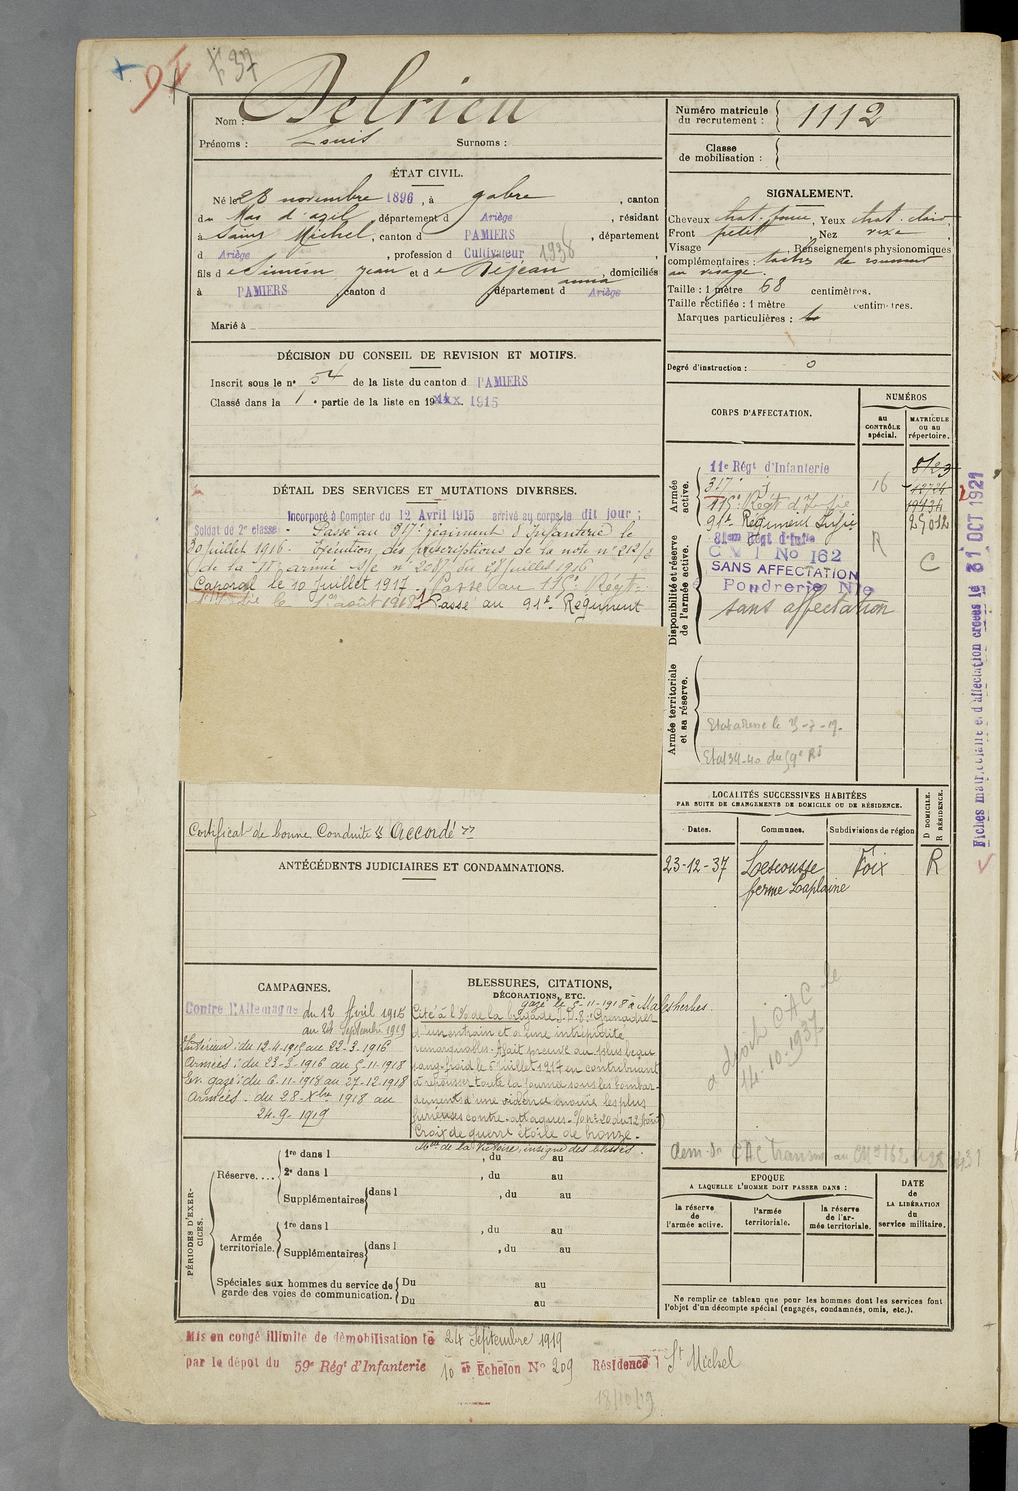 + 91 X 37
Nom : Delrieu
Prénoms : Louis Surnoms :
Numéro matricule du recrutement : 1112
Classe de mobilisation :
ÉTAT CIVIL.
Né le 28 novembre 1896, à Gabre, canton
du Mas d'azil, département d Ariège, résidant
à Saint Michel, canton d PAMIERS, département
d Ariège, profession d Cultivateur 1936
fils de Siméon Jean et de Rejean anna, domiciliés
à PAMIERS canton d département d Ariège
Marié à
SIGNALEMENT.
Cheveux chat. foncé, Yeux chat. clair
Front petit, Nez
Visage , Renseignements physionomiques
complémentaires : taches de rousseur
au visage.
Taille : 1 mètre 68 centimètres.
Taille rectifiée : 1 mètre centimètres.
Marques particulières :
Degré d'instruction : 0
DÉCISION DU CONSEIL DE REVISION ET MOTIFS.
Inscrit sous le n° 54 de la liste du canton d PAMIERS
Classé dans la 1° partie de la liste en 19 1915
DÉTAIL DES SERVICES ET MUTATIONS DIVERSES.
Incorporé à Compter du 12 Avril 1915 arrivé au corps le dit jour ;
Soldat de 2e classe. - Passé au 317e régiment d'Infanterie le
30 juillet 1916. Exécution des prescriptions de la note n° 212/2
de la IIe armée s/c n° 2087 du 28 juillet 1916
Caporal le 10 Juillet 1917. Passé au 115e Régt
le 1er août 1918. Passé au 91e Régiment
Certificat de bonne Conduite "Accordé"
CORPS D'AFFECTATION.
NUMÉROS
au CONTRÔLE spécial.
MATRICULE ou au répertoire.
Armée active.
11e Régt d'Infanterie
317e
115e Régt d'Infie
91e Régiment Infie
16
8123
25012
Disponibilité et réserve de l'armée active.
81eme Régt d'Infie
C M I No 162
SANS AFFECTATION
Poudrerie Nle
sans affectation
R
C
Armée territoriale et sa réserve.
Etat 39-40 du 59e RI
Fiches matriculaire et d'affectation créées le 31 OCT 1921
LOCALITÉS SUCCESSIVES HABITÉES
PAR SUITE DE CHANGEMENTS DE DOMICILE OU DE RÉSIDENCE.
D DOMICILE. R RÉSIDENCE.
Dates. Communes. Subdivisions de région
23-12-37 Lescousse Foix R
ferme Laplaine
a droit CAC le
14-10-1937
ANTÉCÉDENTS JUDICIAIRES ET CONDAMNATIONS.
CAMPAGNES.
Contre l'Allemagne du 12 Avril 1915
au 24 Septembre 1919
Intérieur : du 12-4-1915 au 22-3-1916
Armées : du 23-3-1916 au 5-11-1918
Ev. gazé : du 6-11-1918 au 27-12-1918
Armées : du 28-Xbre 1918 au
24-9-1919
BLESSURES, CITATIONS,
DÉCORATIONS, ETC.
gazé le 5-11-1918 à Malesherbes
Cité à l'O/ de la brigade I.D.8 : Grenadier
d'un entrain et d'une intrépidité
remarquables. A fait preuve du plus beau
sang-froid le 8 juillet 1917 en contribuant
à repousser toute la journée sous les bombardements
d'une violence inouïe les plus
furieuses contre-attaques. O/ n° 20 du 12 Août
Croix de guerre étoile de bronze.
Mlle de la Victoire, insigne des blessés.
PÉRIODES D'EXERCICES.
Réserve....
1re dans l , du au
2e dans l , du au
Supplémentaires dans l , du au
Armée territoriale.
1re dans l , du au
Supplémentaires dans l , du au
Spéciales aux hommes du service de garde des voies de communication.
Du au
Du au
EPOQUE
A LAQUELLE L'HOMME DOIT PASSER DANS :
la réserve de l'armée active.
l'armée territoriale.
la réserve de l'armée territoriale.
DATE DE LA LIBÉRATION du service militaire.
Ne remplir ce tableau que pour les hommes dont les services font
l'objet d'un décompte spécial (engagés, condamnés, omis, etc.).
Mis en congé illimité de démobilisation le 24 Septembre 1919
par le dépôt du 59e Régt d'Infanterie 10 e Echelon No 209 Résidence St Michel
18/10/19